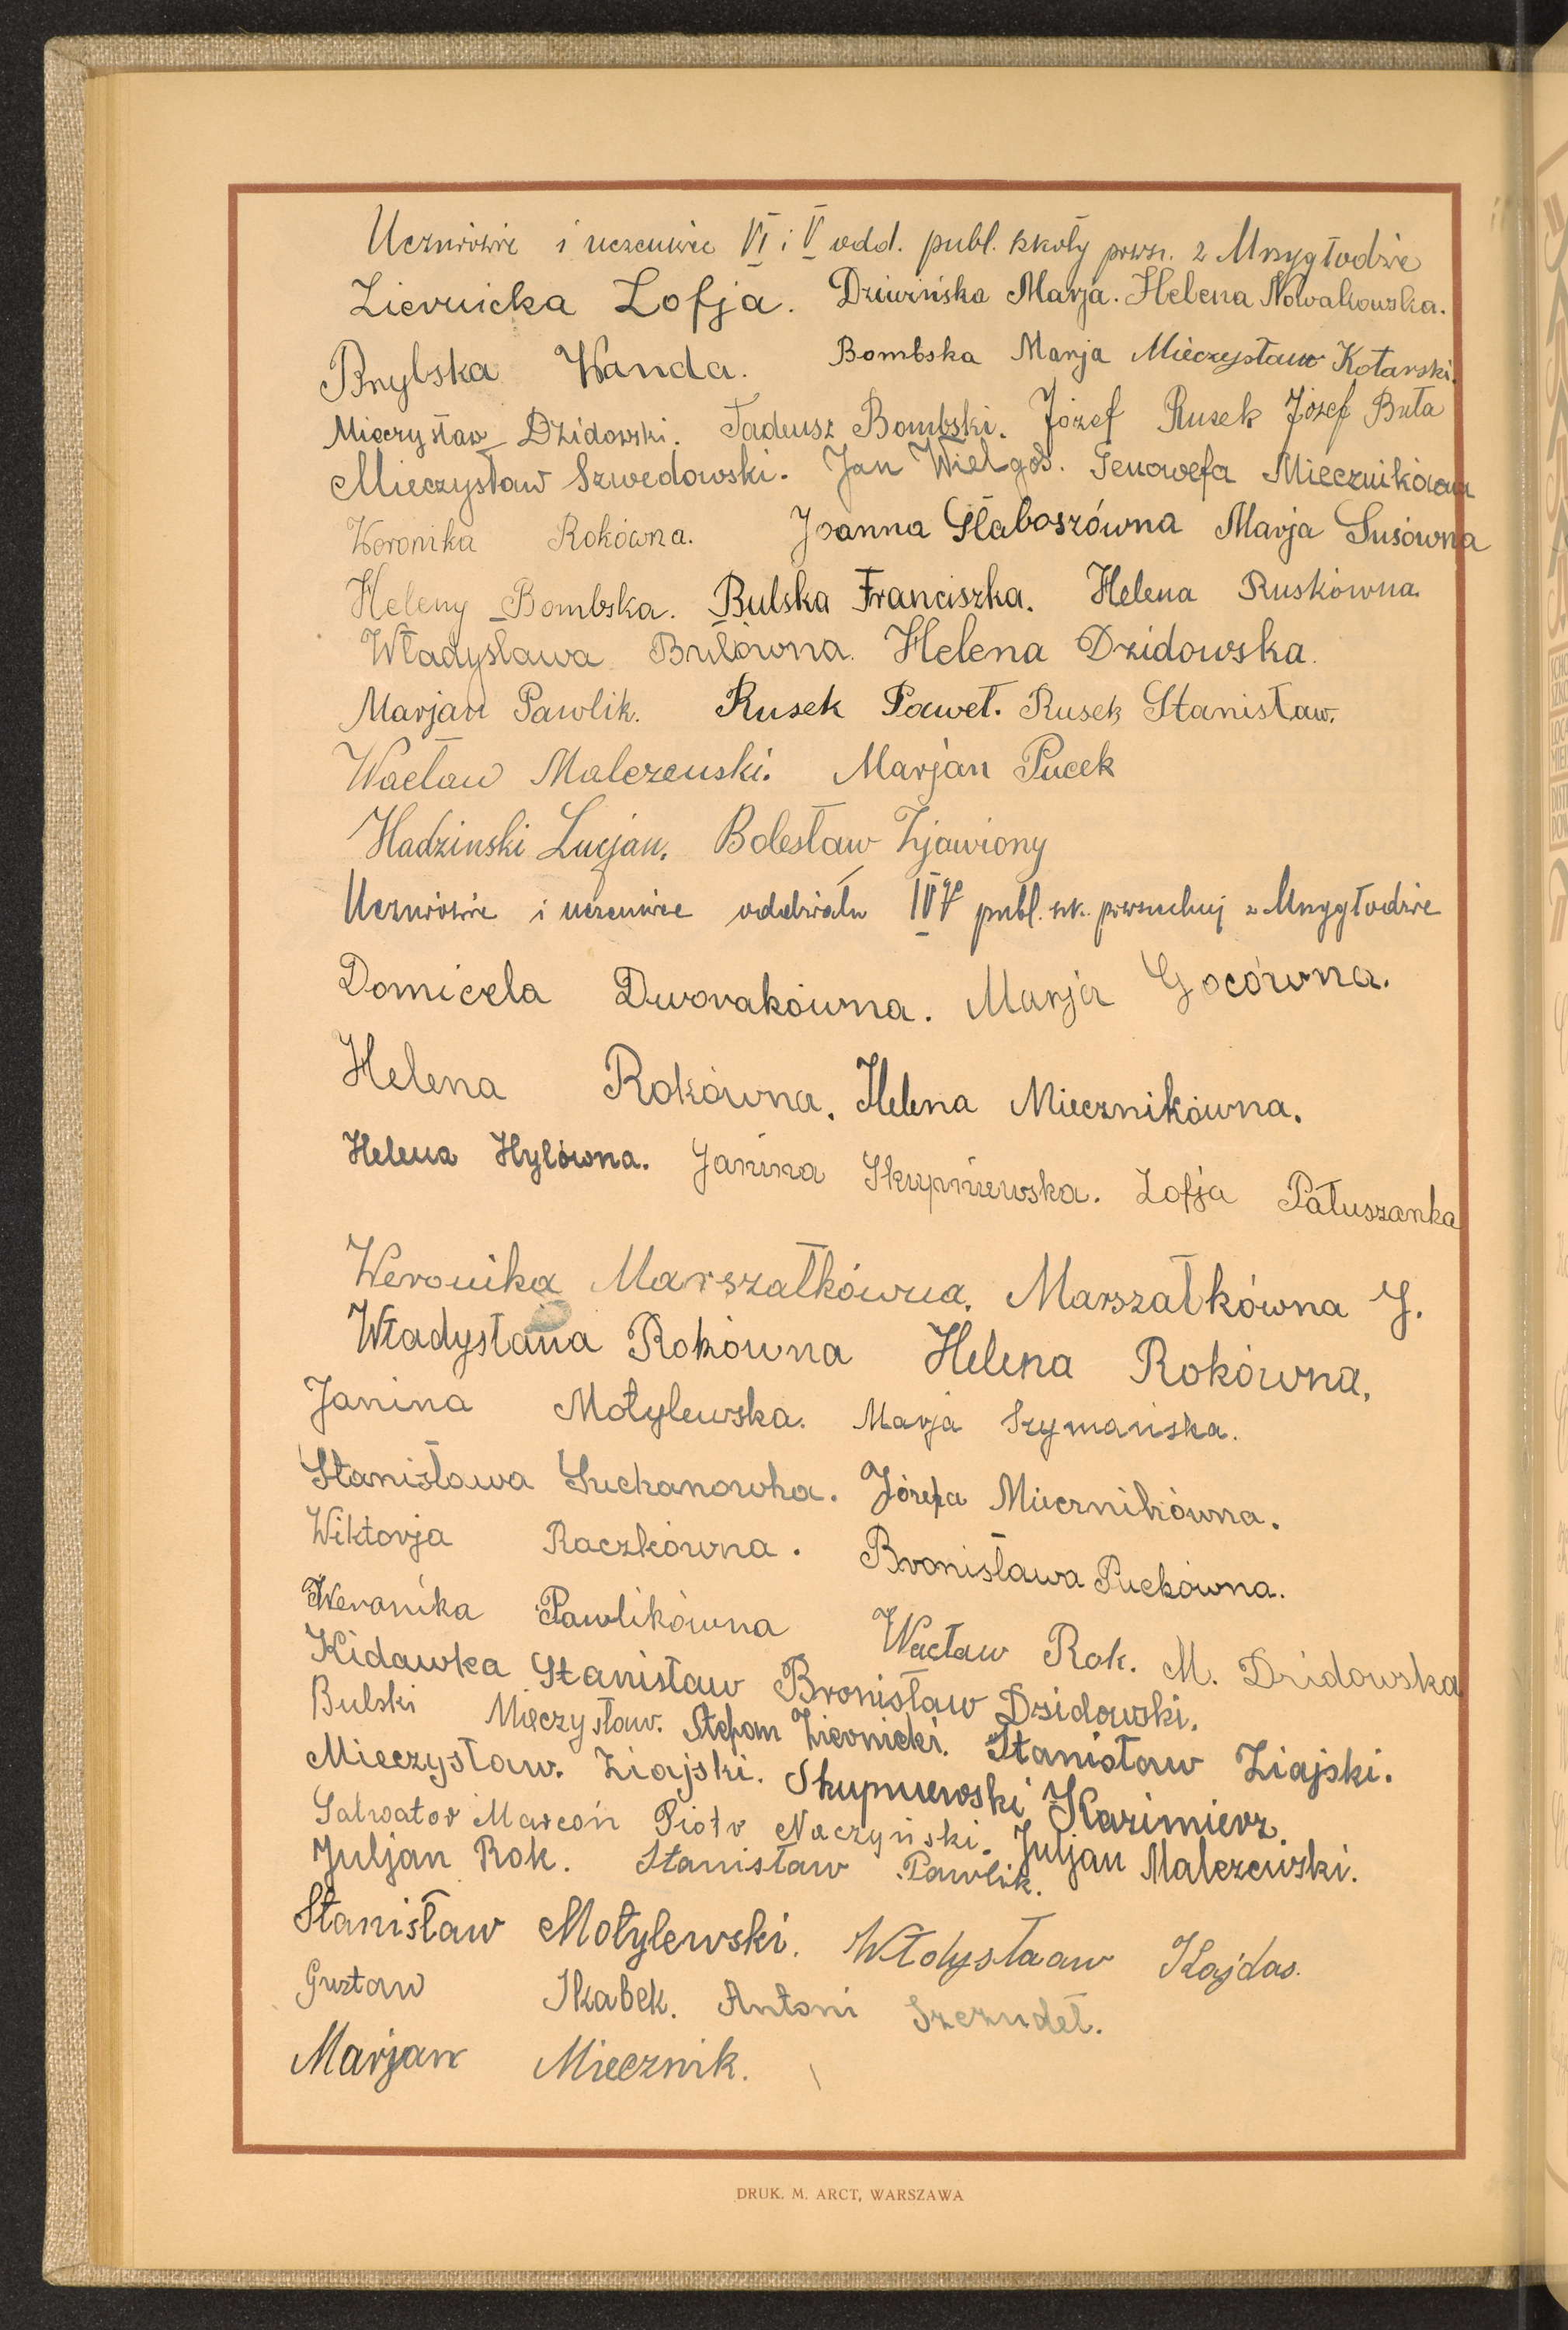 Uczniowie i uczenice VI i V odd. publ. szkoły powsz. z Mrzygłodzie
Ziernicka Zofja. Dziwińska Marja. Helena Nowakowska.
Brylska Wanda. Bombska Marja Mieczysław Kotarski.
Mieczysław Dzidowski. Tadeusz Bombski. Józef Rusek Józef Buła
Mieczysław Szwedowski. Jan Wielgos. Genowefa Miecznikówna
Weronika Rokówna. Joanna Głaboszówna Marja Susówna
Heleny Bombska. Bulska Franciszka. Helena Ruskówna.
Władysława Bulówna. Helena Dzidowska.
Marjan Pawlik. Rusek Paweł. Rusek Stanisław.
Wacław Malczewski. Marjan Pucek
Hadzinski Lucjan. Bolesław Zjawiony
Uczniowie i uczenice oddziału IV publ. szk. powszechnej z Mrzygłodzie
Domicela Dworakówna. Marja Gocówna.
Helena Rokówna. Helena Miecznikówna.
Helena Hylówna. Janina Skupniewska. Zofja Pałuszanka
Weronika Marszałkówna. Marszałkówna J.
Władysława Rokówna Helena Rokówna.
Janina Motylewska. Marja Szymańska.
Stanisława Suchanowna. Józefa Miecznikówna.
Wiktorja Raczkówna. Bronisława Puckówna.
Weronika Pawlikówna Wacław Rok. M. Dzidowska
Kidawka Stanisław Bronisław Dzidowski.
Bulski Mieczysław. Stefan Ziernicki. Stanisław Ziajski.
Mieczysław. Ziajski. Skupniewski Kazimierz.
Salwator Marcoń Piotr Naczyński. Juljan Malczewski.
Juljan Rok. Stanisław Pawlik.
Stanisław Motylewski. Włodysłaaw Kajdas.
Gustaw Skabek. Antoni Szczudeł.
Marjan Miecznik.
DRUK. M. ARCT, WARSZAWA